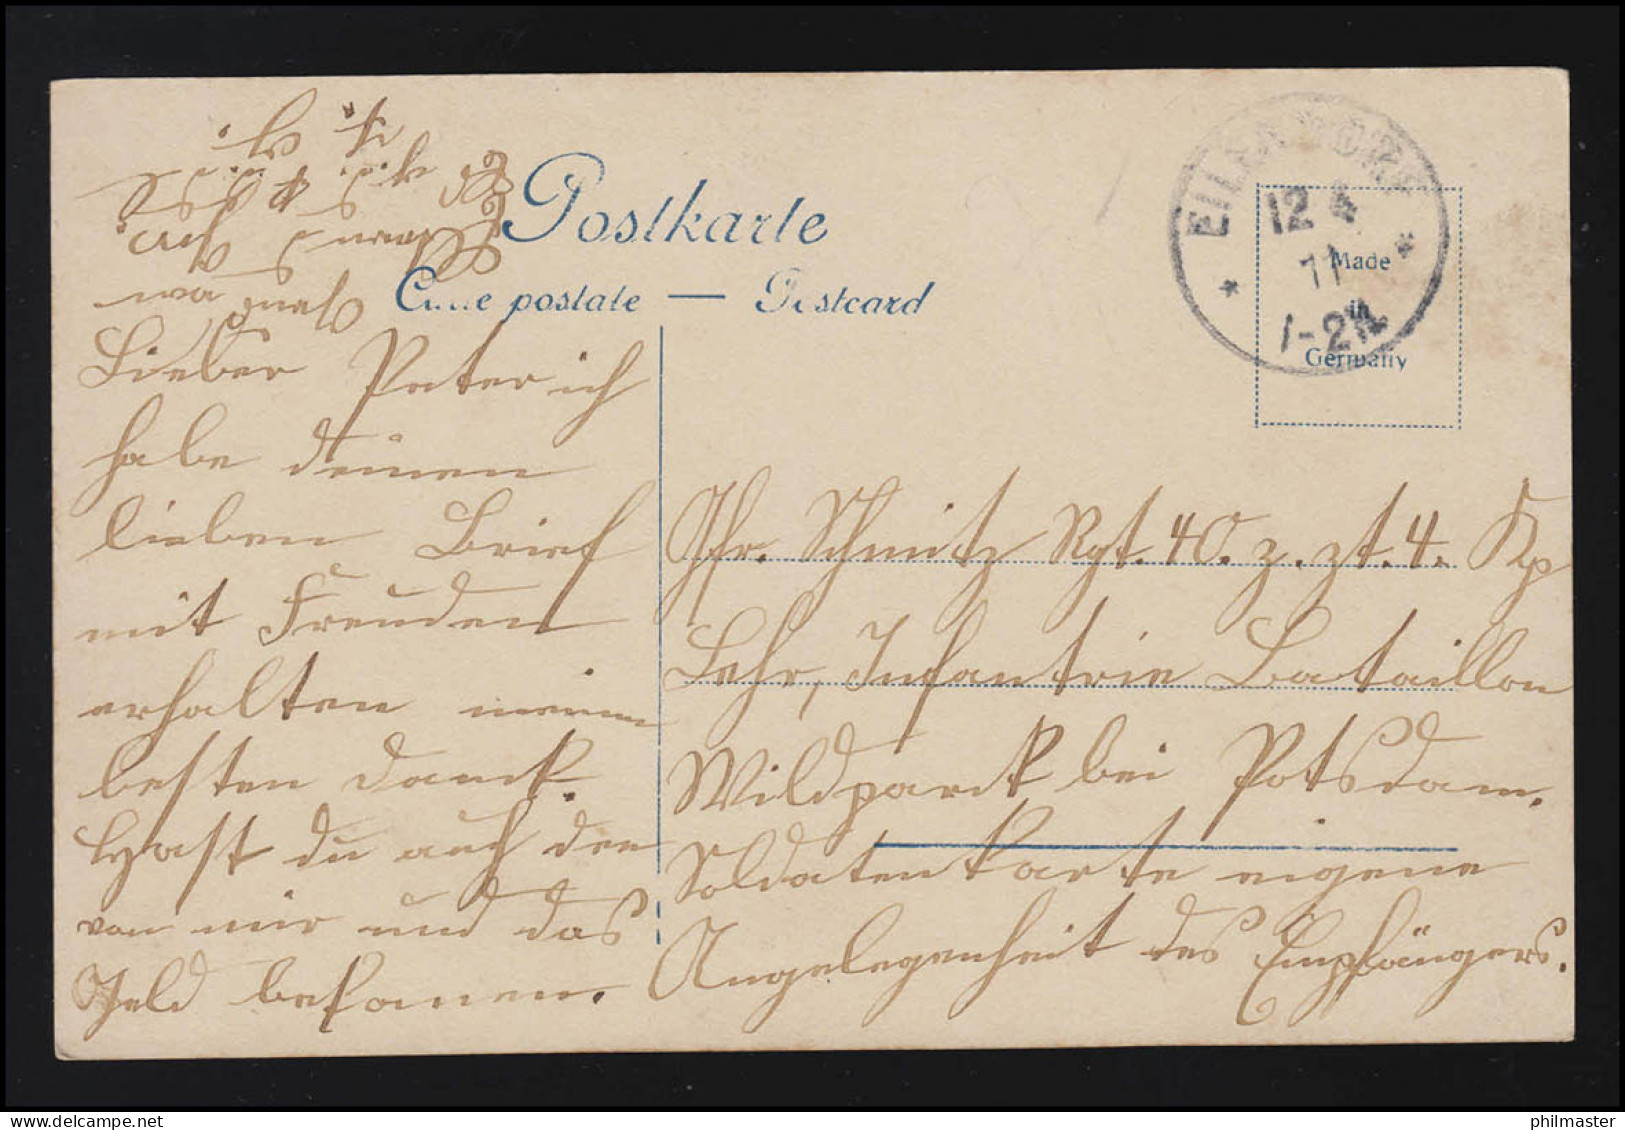 Postkarte
Carte postale — Postcard
12 4
11
1-2N.
Made
in
Germany
Lieber Peter ich
habe deinen
lieben Brief
mit Freuden
erhalten meinen
besten Danck.
Hast du auch den
von mir und das
Geld bekomen.
Gfr. Schmitz Rgt. 40. z. zt. 4. Kp
Lehr, Infantrie Bataillon
Wildparck bei Potsdam.
Soldatenkarte eigene
Angelegenheit des Empfängers.
philmaster
delcampe.net